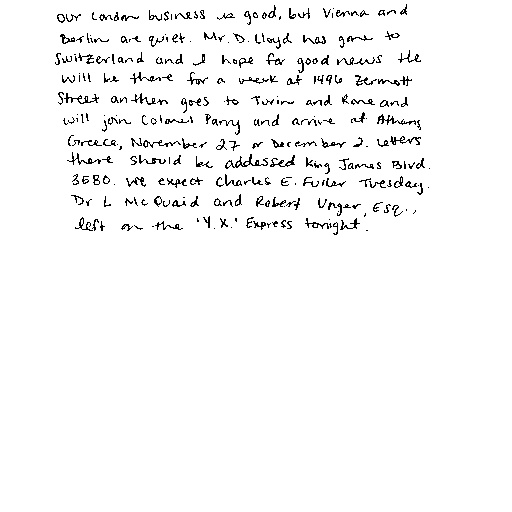 Our London business is good, but Vienna and
Berlin are quiet. Mr. D. Lloyd has gone to
Switzerland and I hope for good news He
will be there for a week at 1496 Zermott
Street an then goes to Turin and Rome and
will join Colonel Parry and arrive at Athens
Greece, November 27 or December 2. Letters
there should be addessed King James Blvd.
3580. We expect Charles E. Fuller Tuesday.
Dr L McQuaid and Robert Unger, Esq.,
left on the 'Y.X.' Express tonight.